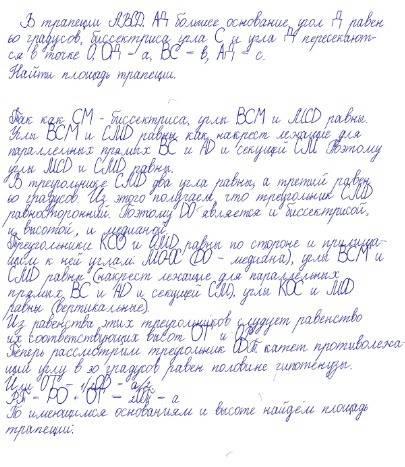 В трапеции АВСД АД большее основание, угол Д равен
60 градусов, биссектриса угла С и угла Д пересекают-
ся в точке О, ОД = а, ВС = в, АД = с.
Найти площадь трапеции.
Так как СМ - биссектриса, углы ВСМ и МСD равны.
Углы ВСМ и СМD равны как накрест лежащие для
параллельных прямых ВС и АD и секущей СМ. Поэтому
углы МСD и СМD равны.
В треугольнике СМD два угла равны, а третий равен
60 градусов. Из этого получаем, что треугольник СМD
равносторонний. Поэтому DO является и биссектрисой,
и высотой, и медианой.
Треугольники КСО и МD равны по стороне и прилежа-
щим к ней углам: МО=ОС (DO - медиана), углы ВСМ и
СМD равны (накрест лежащие для параллельных
прямых ВС и АD и секущей СМ), углы КОС и МОD
равны (вертикальные).
Из равенства этих треугольников следует равенство
их соответствующих высот ОТ и
Теперь рассмотрим треугольник катет противолежа-
щий углу в 30 градусов равен половине гипотенузы.
Или ОТ = 1/2OD = a/2
= + ОТ = 2ОТ = а
По имеющимся основаниям и высоте найдём площадь
трапеции: